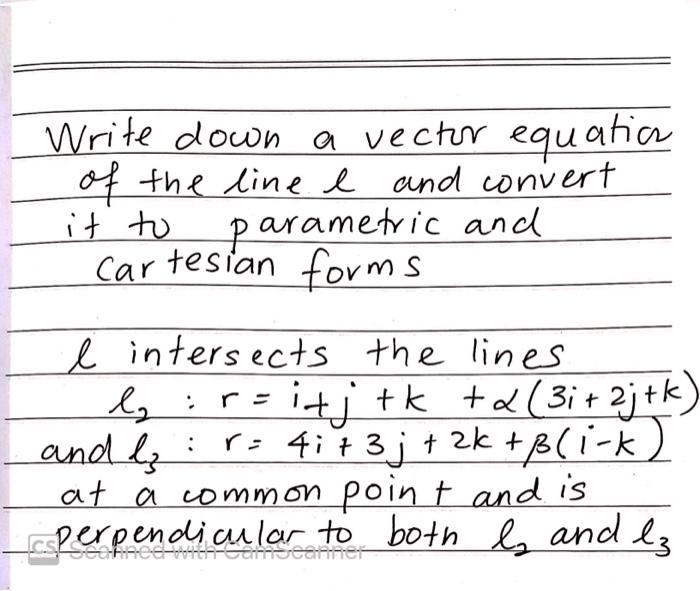 Write down a vector equation
of the line l and convert
it to parametric and
cartesian forms
l intersects the lines
l₂ : r = i+j+k +α(3i+2j+k)
and l₃ : r = 4i+3j+2k+β(i-k)
at a common point and is
perpendicular to both l₂ and l₃
CS Scanned with CamScanner